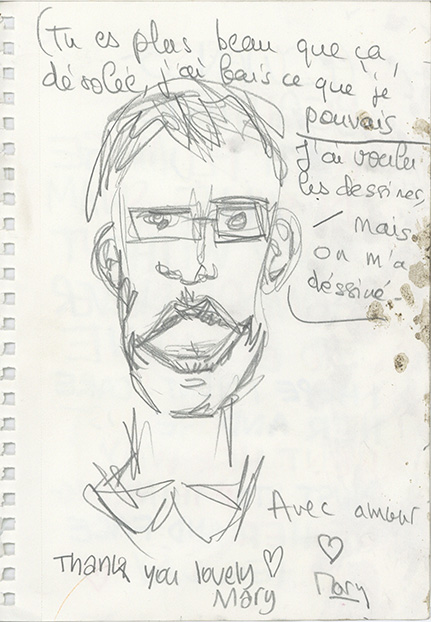 (Tu es plus beau que ça,
désolée, j'ai fais ce que je
pouvais
J'ai voulu
les dessiner,
/ Mais
on m'a
déssiné -
Avec amour
♡
Mary
Thank you lovely ♡
Mary